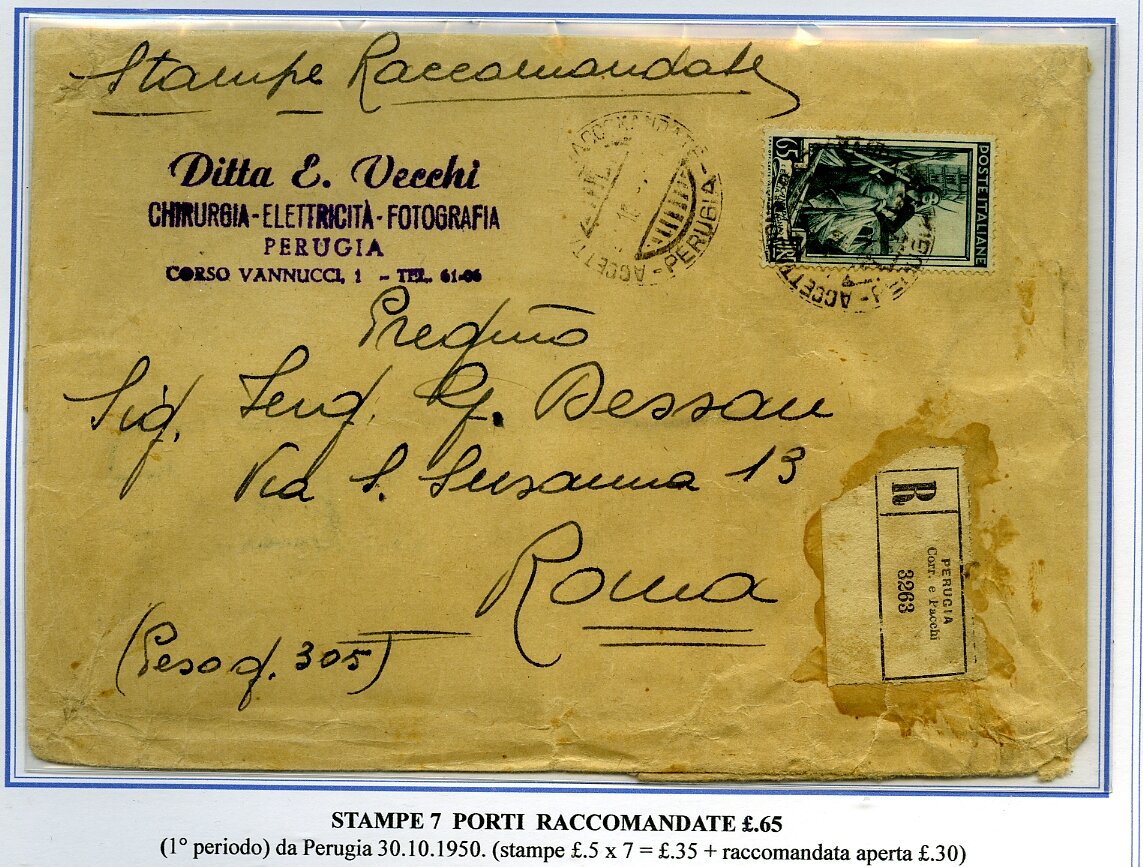 Stampe Raccomandate
Ditta E. Vecchi
CHIRURGIA-ELETTRICITÀ-FOTOGRAFIA
PERUGIA
CORSO VANNUCCI, 1 - TEL. 61-06
RACCOMANDATE - PERUGIA - ACCETTAZ
POSTE ITALIANE
65
Preg/mo
Sig. Ing. G. Dessau
Via S. Susanna 13
Roma
(Peso g. 305)
R
PERUGIA
Corr. e Pacchi
3263
STAMPE 7 PORTI RACCOMANDATE £.65
(1° periodo) da Perugia 30.10.1950. (stampe £.5 x 7 = £.35 + raccomandata aperta £.30)